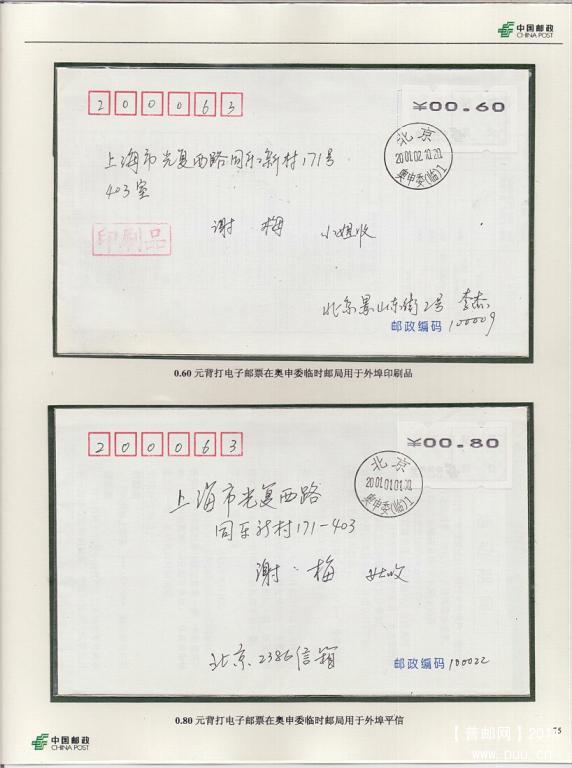 中国邮政
CHINA POST
200063
¥00.60
北京
2001.02.10.20
奥申委(临)1
上海市光复西路同乐新村171号
403室
印刷品
谢 梅 小姐收
北京景山东街2号 李杰
邮政编码 100009
0.60 元背打电子邮票在奥申委临时邮局用于外埠印刷品
200063
¥00.80
北京
2001.01.01
奥申委(临)1
上海市光复西路
同乐新村171-403
谢 梅 收
北京 2386信箱
邮政编码 100022
0.80 元背打电子邮票在奥申委临时邮局用于外埠平信
中国邮政
CHINA POST
75
【普邮网】
www.puu.cn